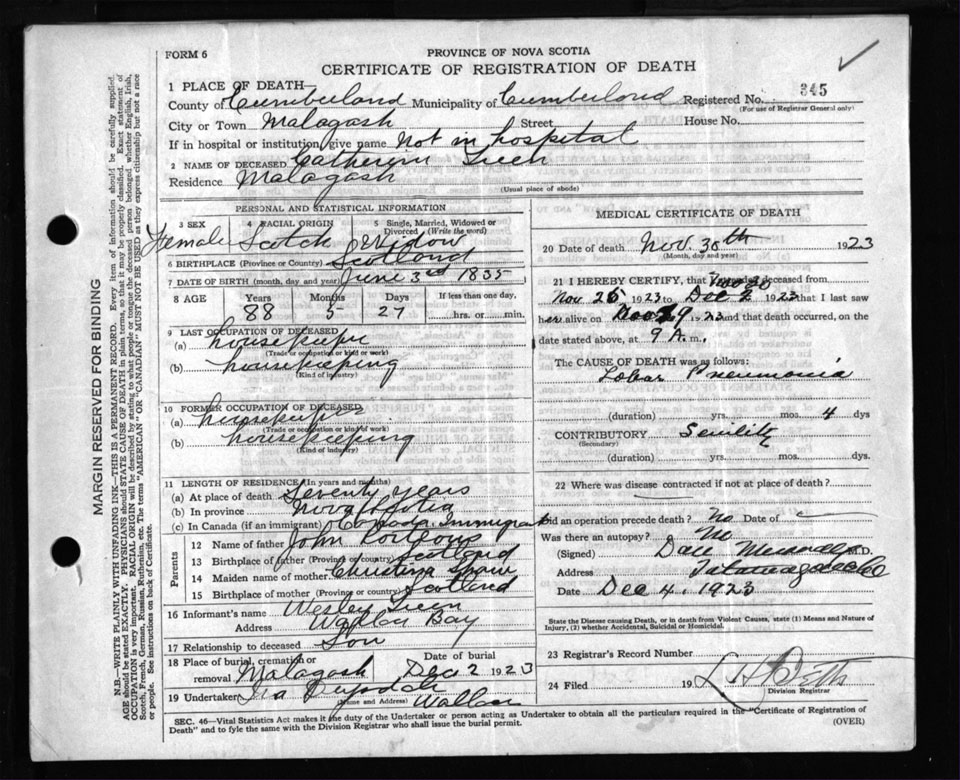 FORM 6
PROVINCE OF NOVA SCOTIA
CERTIFICATE OF REGISTRATION OF DEATH
1 PLACE OF DEATH—
County of Cumberland Municipality of Cumberland Registered No. 345
(For use of Registrar General only)
City or Town Malagash Street House No.
If in hospital or institution, give name Not in hospital
2 NAME OF DECEASED Catherin Green
Residence Malagash
(Usual place of abode)
PERSONAL AND STATISTICAL INFORMATION
3 SEX 4 RACIAL ORIGIN 5 Single, Married, Widowed or Divorced (Write the word)
Female Scotch Widow
6 BIRTHPLACE (Province or Country) Scotland
7 DATE OF BIRTH (month, day and year) June 3rd 1835
8 AGE Years Months Days If less than one day,
88 5 27 hrs. or min.
9 LAST OCCUPATION OF DECEASED
(a) housekeeper
(Trade or occupation or kind or work)
(b) housekeeping
(Kind of industry)
10 FORMER OCCUPATION OF DECEASED
(a) housekeeper
(Trade or occupation or kind of work)
(b) housekeeping
(Kind of industry)
11 LENGTH OF RESIDENCE (In years and months)
(a) At place of death Seventy years
(b) In province Nova Scotia
(c) In Canada (if an immigrant) Canada Immigrant
Parents
12 Name of father John
13 Birthplace of father (Province or country) Scotland
14 Maiden name of mother Christina Shaw
15 Birthplace of mother (Province or country) Scotland
16 Informant's name Wesley Green
Address Wallace Bay
17 Relationship to deceased Son
18 Place of burial, cremation or removal Malagash Date of burial Dec 2 1923
19 Undertaker Ira Wallace
(Name and Address)
MEDICAL CERTIFICATE OF DEATH
20 Date of death Nov. 30th 1923
(Month, day and year)
21 I HEREBY CERTIFY, that I attended deceased from
Nov 26 1923 to Dec 2 1923 that I last saw
her alive on Nov 29 1923 and that death occurred, on
date stated above, at 9 A.m.
The CAUSE OF DEATH was as follows:
Lobar Pneumonia
(duration) yrs. mos. 4 dys
CONTRIBUTORY Senility
(Secondary)
(duration) yrs. mos. dys.
22 Where was disease contracted if not at place of death?
Did an operation precede death? No Date of
Was there an autopsy? No
(Signed) Dan M.D.
Address Tatamagouche
Date Dec 4, 1923
State the Disease causing Death, or in death from Violent Causes, state (1) Means and Nature of Injury, (2) whether Accidental, Suicidal or Homicidal.
23 Registrar's Record Number
24 Filed 19
Division Registrar
SEC. 46—Vital Statistics Act makes it the duty of the Undertaker or person acting as Undertaker to obtain all the particulars required in the "Certificate of Registration of
Death" and to fyle the same with the Division Registrar who shall issue the burial permit. (OVER)
MARGIN RESERVED FOR BINDING
N.B.—WRITE PLAINLY WITH UNFADING INK—THIS IS A PERMANENT RECORD. Every item of information should be carefully supplied.
AGE should be stated EXACTLY. PHYSICIANS should STATE CAUSE OF DEATH in plain terms, so that it may be properly classified. Exact statement of
OCCUPATION is very important. RACIAL ORIGIN will be described by stating to what people or tongue the deceased person belonged whether English, Irish,
Scotch, French, German, Russian, Ruthenian, etc. The terms "AMERICAN" or "CANADIAN" MUST NOT BE USED as they express citizenship but not a race
or people. See instructions on back of Certificate.